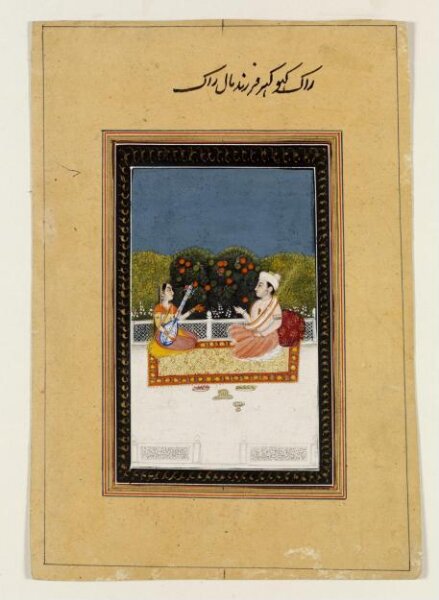 راک کهوکهر فرزند مال راک